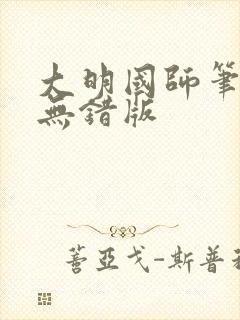 大明國師筆
無錯版
薔亞戈-斯普利